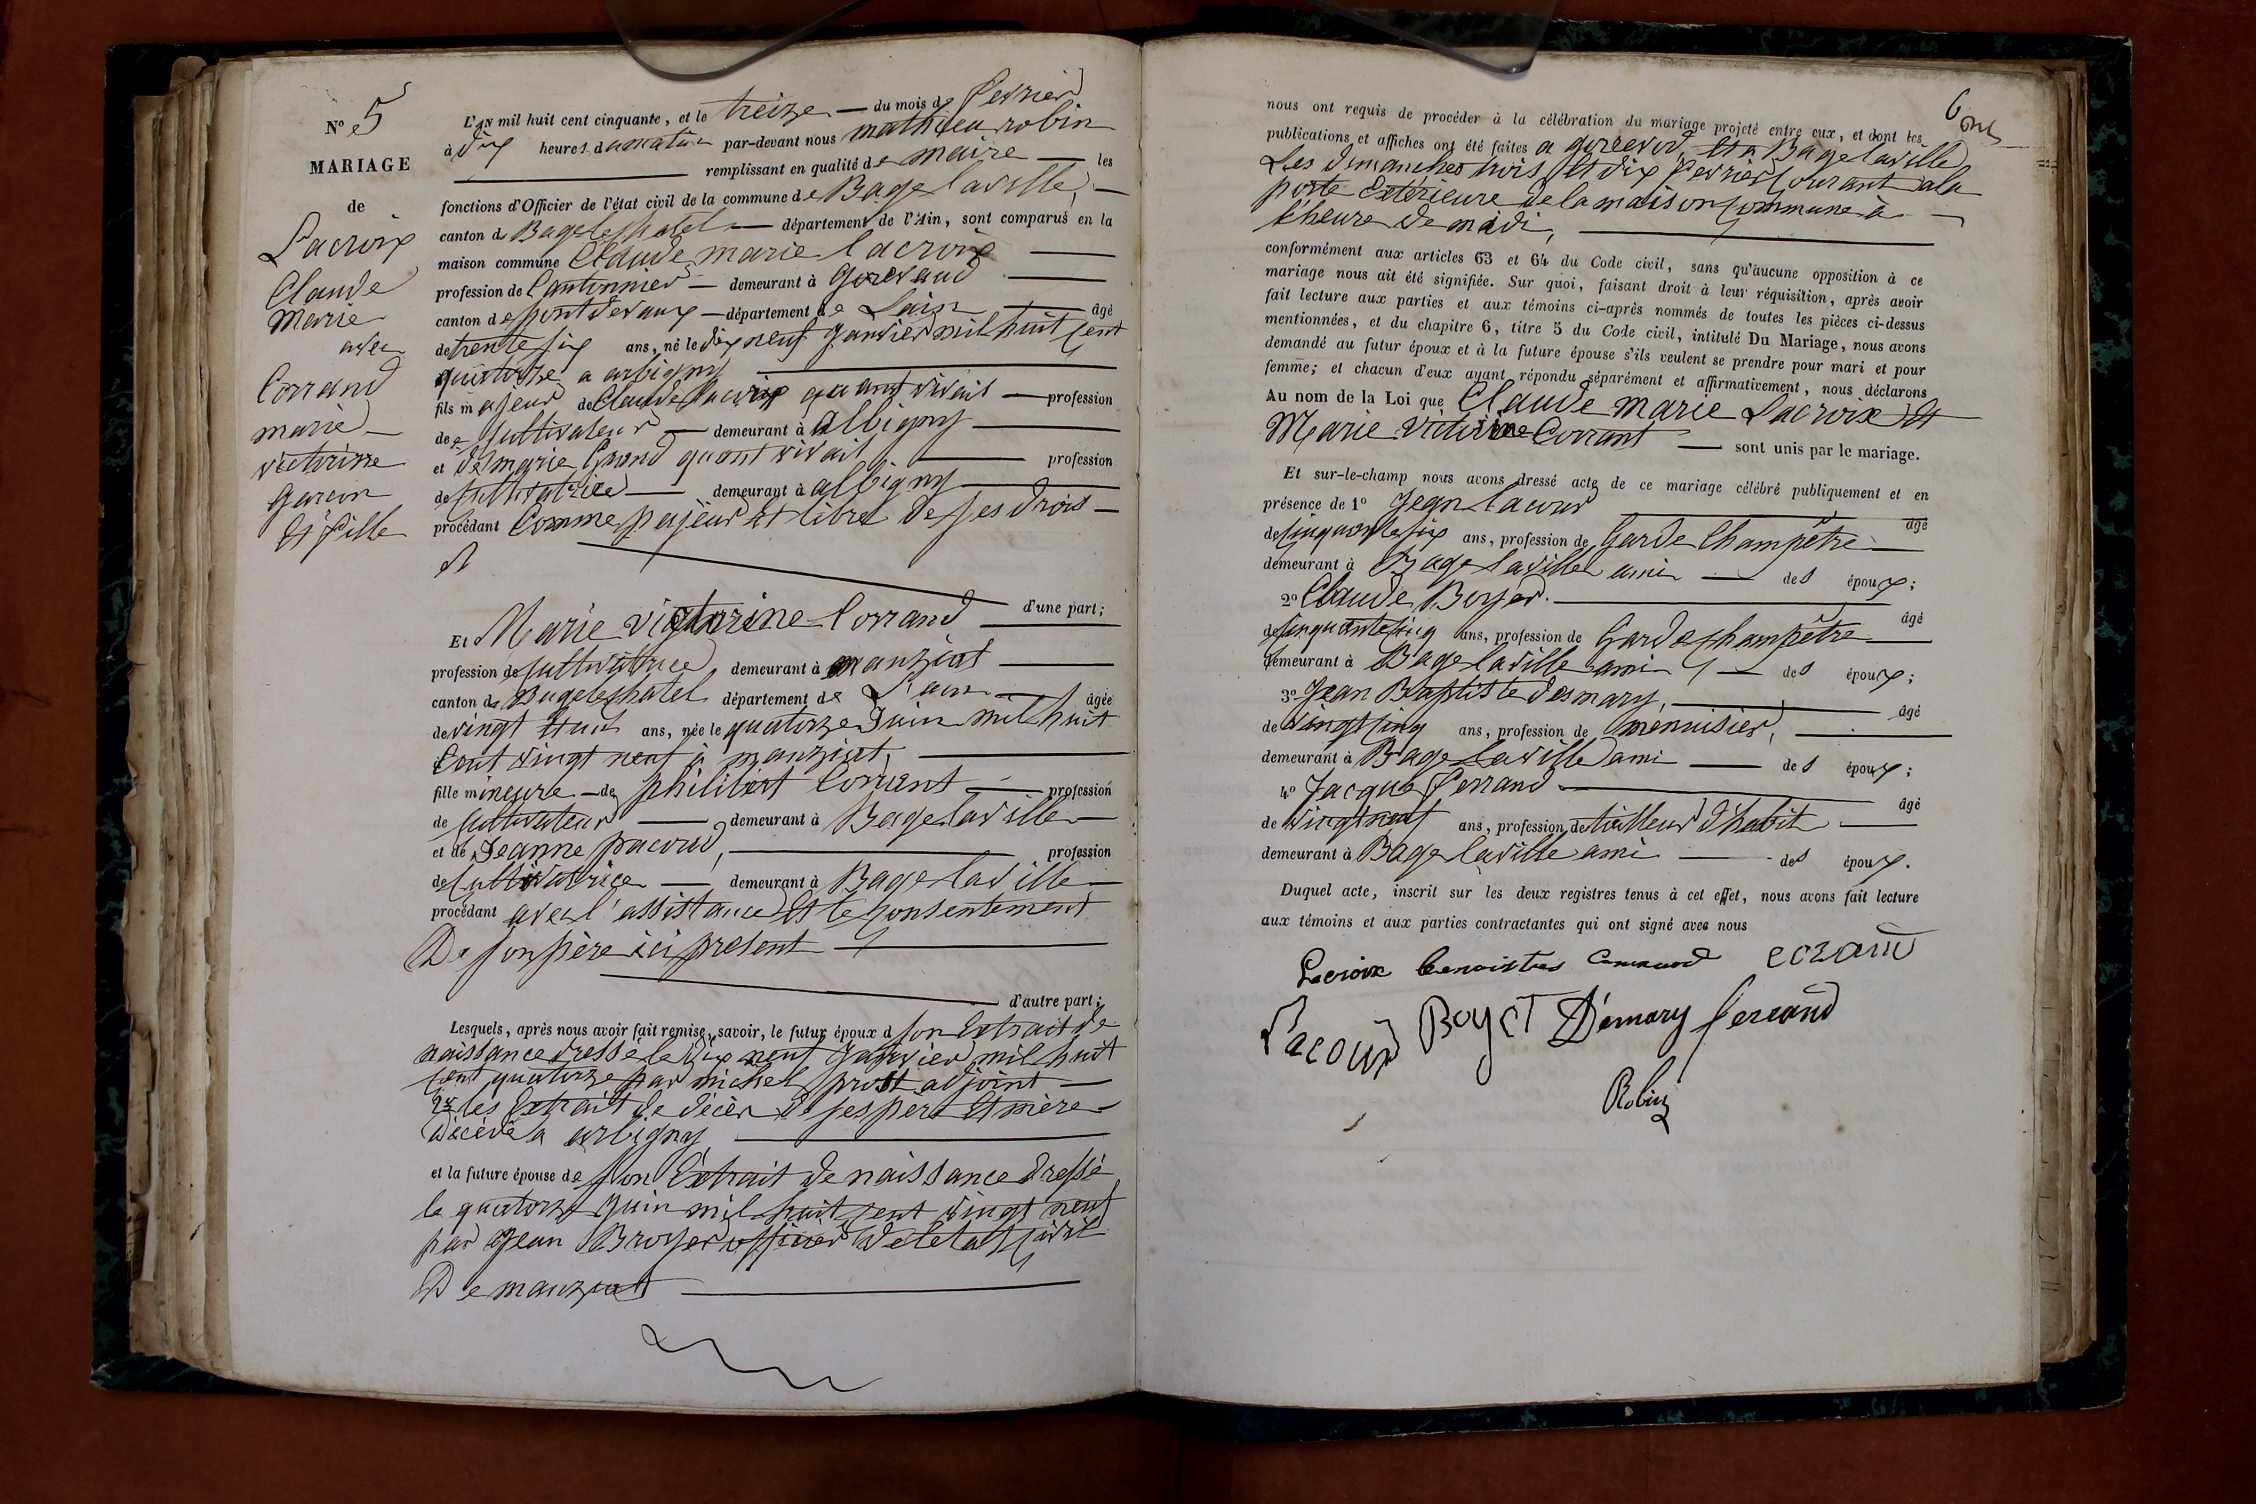 N° 5
MARIAGE
de
Lacroix
Claude
marie
avec
Corrand
marie
victorine
garcon
et fille
L'an mil huit cent cinquante, et le treize du mois de fevrier
à dix heures du matin par-devant nous mathieu robin
remplissant en qualité de maire les
fonctions d'Officier de l'état civil de la commune de Bage laville
canton de Bagelechatel département de l'Ain, sont comparus en la
maison commune Claude marie lacroix
profession de Cantonnier demeurant à gorevaud
canton de pontdevaux département de Lain âgé
de trente six ans, né le dix neuf janvier mil huit cent
quatorze a arbigny
fils majeur de Claude lacroix quant vivait profession
de cultivateur demeurant à albigny
et de marie quant vivait profession
de cultivatrice demeurant à albigny
procédant Comme majeur et libre de ses drois
d'une part;
Et Marie victorine Corrand
profession de cultivatrice demeurant à manziat
canton de Bagelechatel département de L'ain âgée
de vingt ans, née le quatorze Juin mil huit
Cent vingt neuf à manziat
fille mineure de philibert Corrent profession
de cultivateur demeurant à Bage laville
et de Jeanne pacoud, profession
de cultivatrice demeurant à Bage laville
procédant avec l'assistance et le consentement
De son père ici present
d'autre part;
Lesquels, après nous avoir fait remise, savoir, le futur époux d son Extrait de
naissance dressé le dix neuf janvier mil huit
cent quatorze par michel prost adjoint
2° les Extrait de décès de ses père et mère
décédé a arbigny
et la future épouse de son Extrait de naissance dressé
le quatorze juin mil huit cent vingt neuf
par Jean Broyer officier de letat civil
De manziat
6
nous ont requis de procéder à la célébration du mariage projeté entre eux, et dont les
publications et affiches ont été faites a gorrevod et a Bage laville
Les dimanches trois et dix fevrier courant a la
porte Extérieure de la maison commune à
l'heure de midi,
conformément aux articles 63 et 64 du Code civil, sans qu'aucune opposition à ce
mariage nous ait été signifiée. Sur quoi, faisant droit à leur réquisition, après avoir
fait lecture aux parties et aux témoins ci-après nommés de toutes les pièces ci-dessus
mentionnées, et du chapitre 6, titre 5 du Code civil, intitulé Du Mariage, nous avons
demandé au futur époux et à la future épouse s'ils veulent se prendre pour mari et pour
femme; et chacun d'eux ayant répondu séparément et affirmativement, nous déclarons
Au nom de la Loi que Claude marie Lacroix Et
Marie victorine Corrant sont unis par le mariage.
Et sur-le-champ nous avons dressé acte de ce mariage célébré publiquement et en
présence de 1° Jean lacour âgé
de cinquante six ans, profession de Garde Champêtre
demeurant à Bage laville ami des époux;
2° Claude Boyer âgé
de cinquante cinq ans, profession de Garde champêtre
demeurant à Bage laville ami des époux;
3° Jean Baptiste desmary, âgé
de vingt cinq ans, profession de menuisier,
demeurant à Bage laville ami des époux;
4° Jacque ferrand âgé
de vingt neuf ans, profession de tailleur d'habit
demeurant à Bage laville ami des époux.
Duquel acte, inscrit sur les deux registres tenus à cet effet, nous avons fait lecture
aux témoins et aux parties contractantes qui ont signé avec nous
Lacroix
Lacour Boyet Démary ferrand
Robin